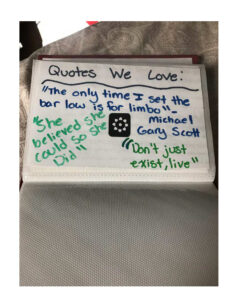 Quotes We Love:
"The only time I set the
bar low is for limbo"-
Michael
Gary Scott
"She
believed she
could so she
Did"
"Don't just
exist, live"